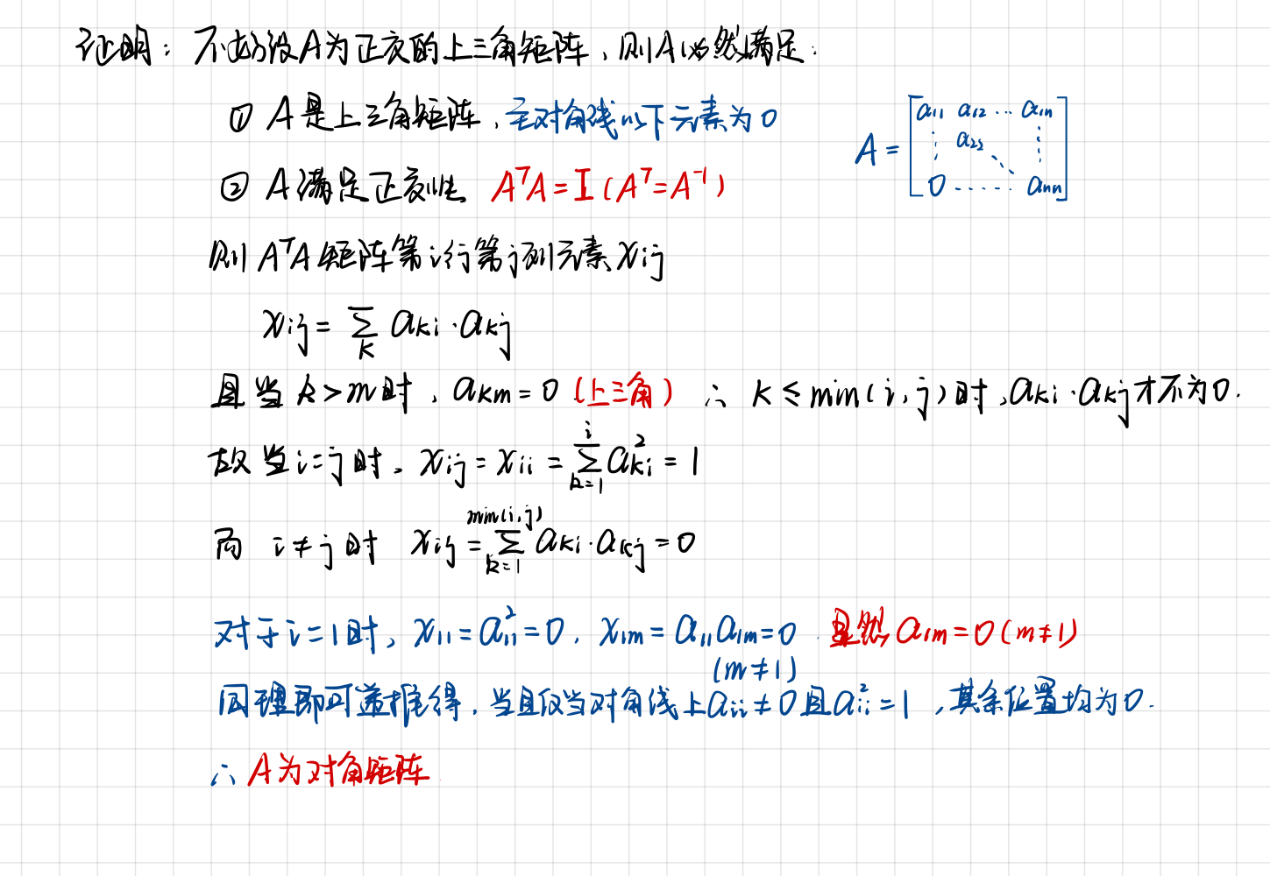 证明：不妨设A为正交的上三角矩阵，则A必然满足：
① A是上三角矩阵，主对角线以下元素为0
② A满足正交性 AᵀA=I(Aᵀ=A⁻¹)
A = [a₁₁ a₁₂ ⋯ a₁ₙ
⋮ a₂₂ ⋱ ⋮
0 ⋯⋯ aₙₙ]
则AᵀA矩阵第i行第j列元素xij
xij = ∑k aki·akj
且当k>m时，akm=0 (上三角) ∴ k≤min(i,j)时,aki·akj才不为0.
故当i=j时，xij=xii=∑_{k=1}^{i} aki²=1
而 i≠j时 xij=∑_{k=1}^{min(i,j)} aki·akj=0
对于i=1时，x₁₁=a₁₁²=0，x₁m=a₁₁a₁m=0 显然a₁m=0(m≠1)
(m≠1)
同理即可递推得，当且仅当对角线上aii≠0且aii²=1，其余位置均为0.
∴ A为对角矩阵